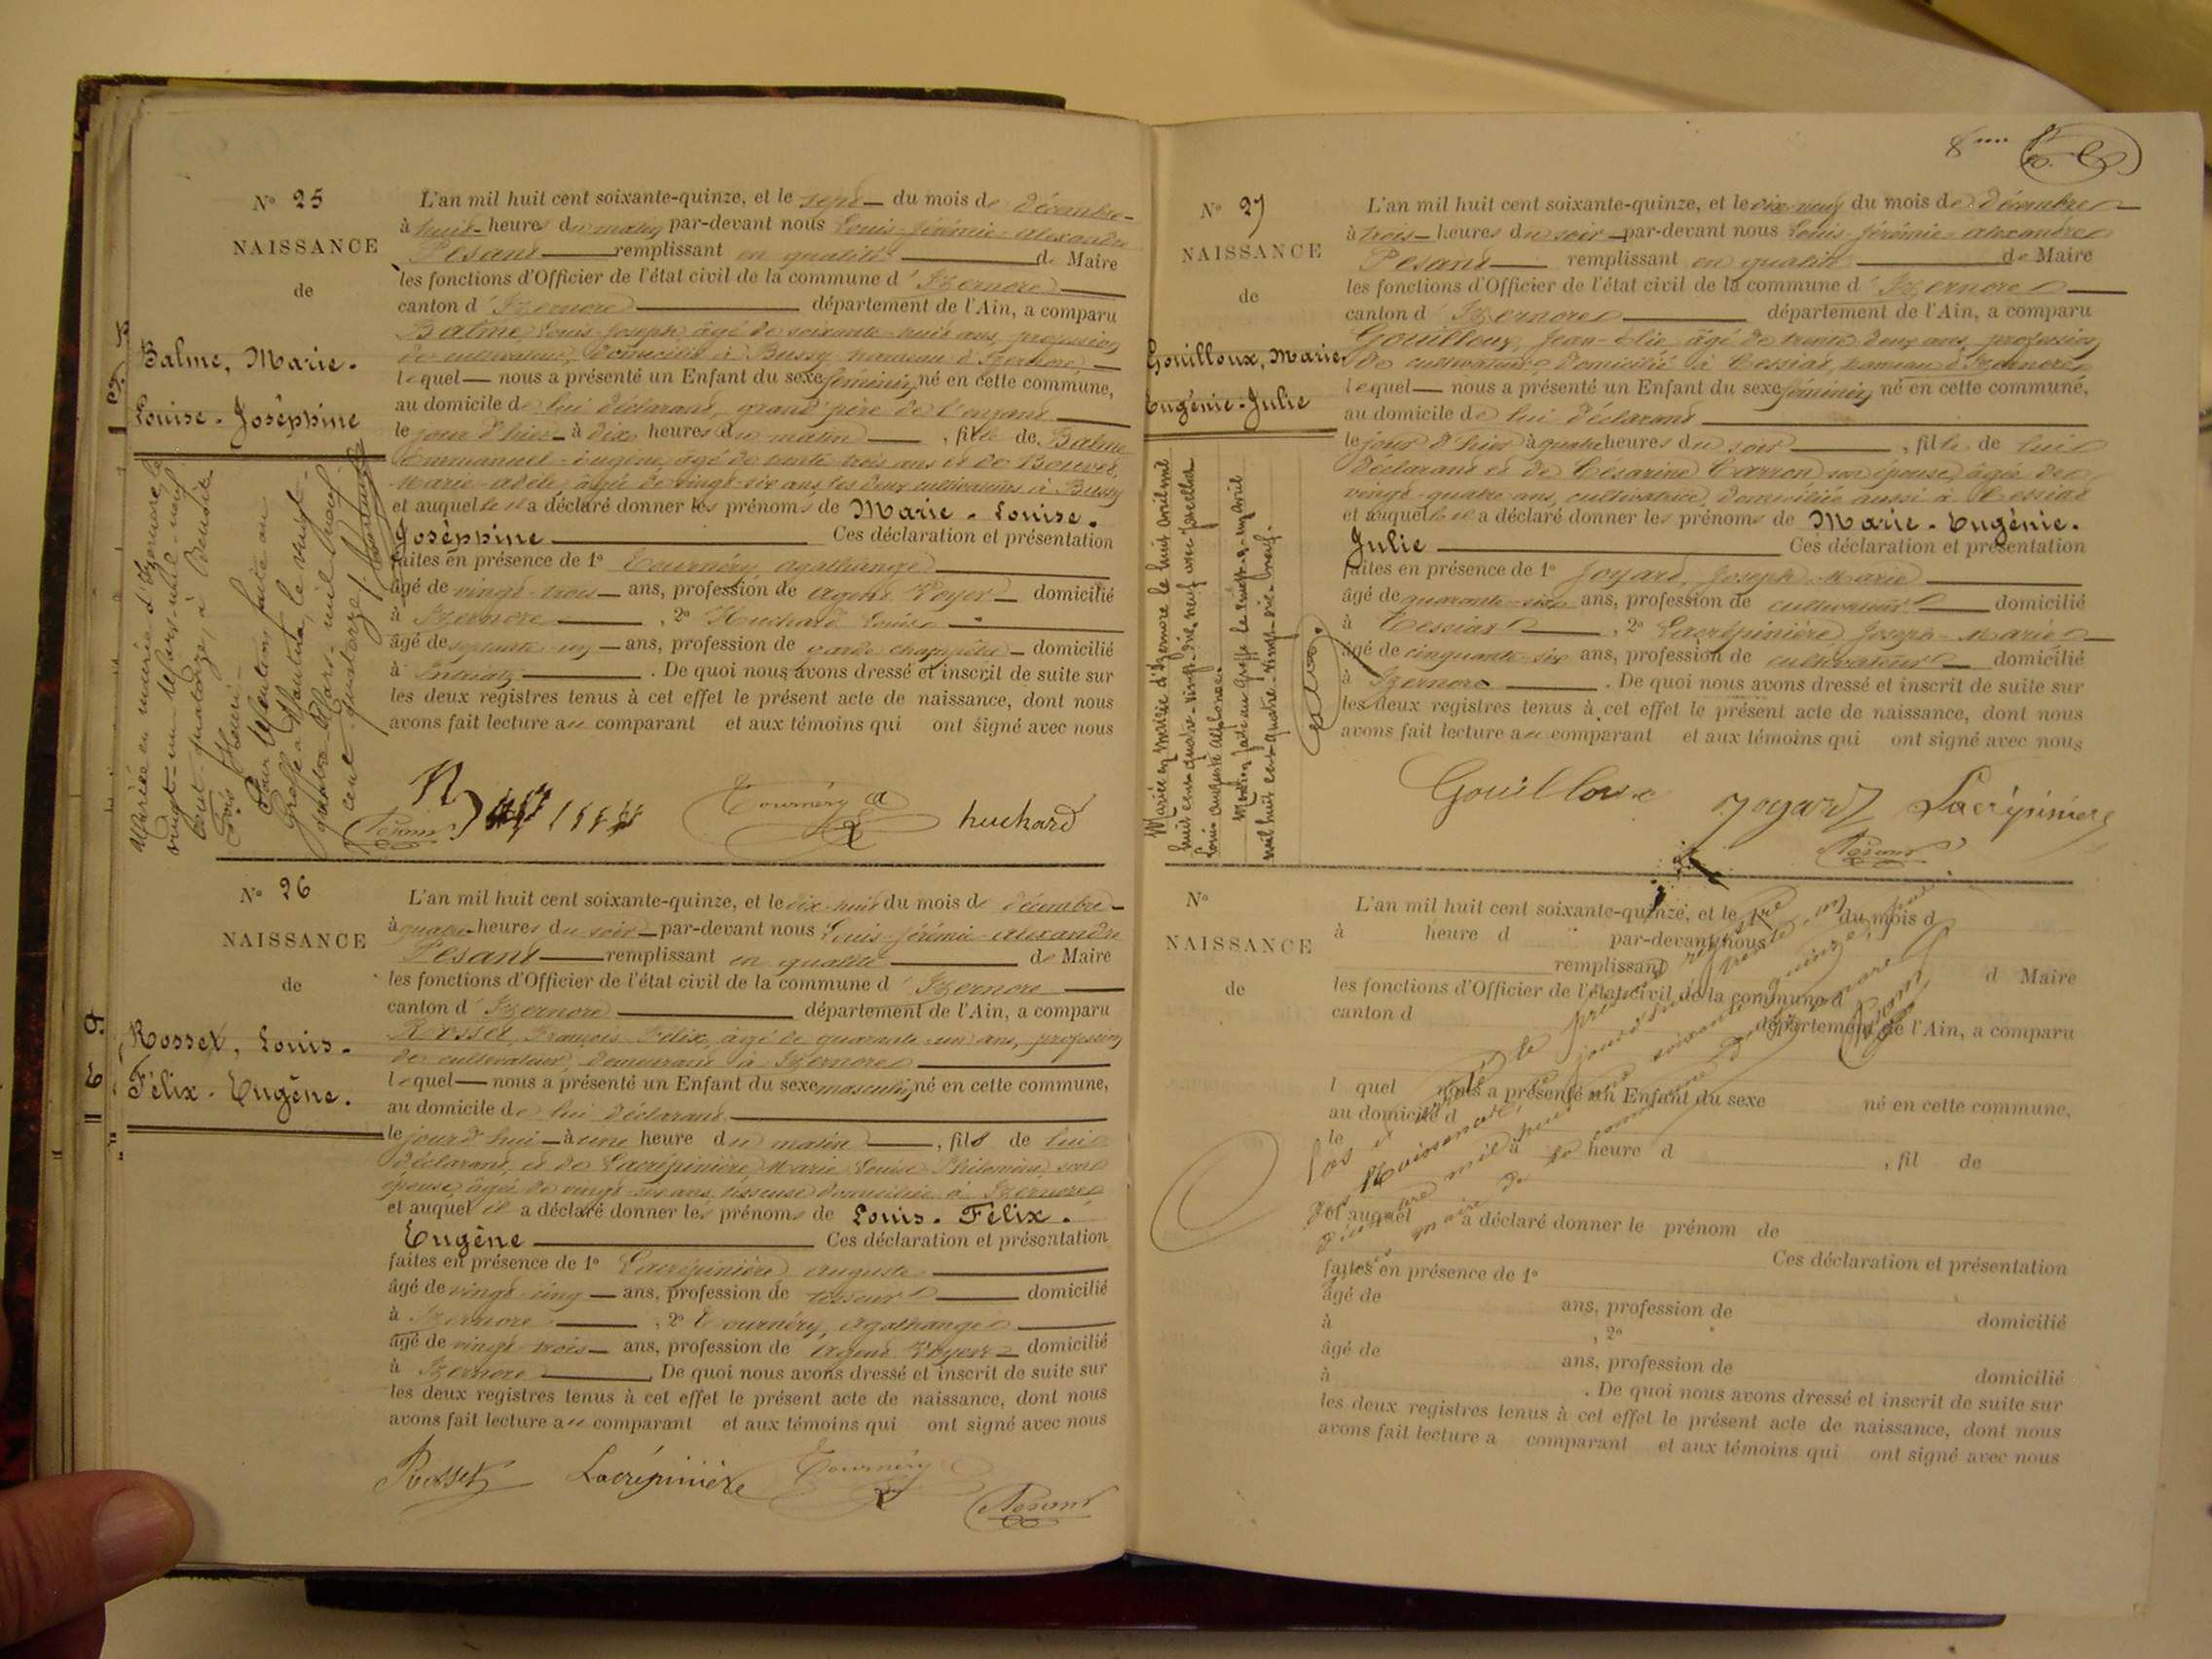 N° 25
NAISSANCE
de
Balme, Marie-
Louise-Joséphine
L'an mil huit cent soixante-quinze, et le sept du mois de décembre
à huit heures du matin par-devant nous Louis-Jérémie-Alexandre
Pesant remplissant en qualité de Maire
les fonctions d'Officier de l'état civil de la commune d'Izernore
canton d'Izernore département de l'Ain, a comparu
Balme, Louis-Joseph, âgé de soixante-huit ans, profession
de cultivateur, domicilié à Bussy hameau d'Izernore,
lequel nous a présenté un Enfant du sexe féminin né en cette commune,
au domicile de lui déclarant, grand'père de l'enfant
le jour d'hier à dix heures du matin, fille de Balme
Emmanuel-Eugène, âgé de trente trois ans et de Bouvet,
Marie-Adèle, âgée de vingt-six ans, les deux cultivateurs à Bussy
et auquel il a déclaré donner les prénoms de Marie-Louise-
Joséphine Ces déclaration et présentation
faites en présence de 1° Tournéry Agathange
âgé de vingt-trois ans, profession de agent Voyer domicilié
à Izernore, 2° Huchard Louis
âgé de septante-un ans, profession de garde champêtre domicilié
à . De quoi nous avons dressé et inscrit de suite sur
les deux registres tenus à cet effet le présent acte de naissance, dont nous
avons fait lecture au comparant et aux témoins qui ont signé avec nous
Mariée en mairie d'Izernore le
vingt-un Mars mil neuf
cent quatorze, à
Pour Mention faite au
Greffe à Nantua, le vingt-
quatre Mars mil neuf
cent quatorze
Pesant Tournéry A huchard
N° 26
NAISSANCE
de
Rosset, Louis-
Félix-Eugène.
L'an mil huit cent soixante-quinze, et le dix-huit du mois de décembre
à quatre heures du soir par-devant nous Louis-Jérémie-Alexandre
Pesant remplissant en qualité de Maire
les fonctions d'Officier de l'état civil de la commune d'Izernore
canton d'Izernore département de l'Ain, a comparu
Rosset, François Félix, âgé de quarante-un ans, profession
de cultivateur, demeurant à Izernore
lequel nous a présenté un Enfant du sexe masculin né en cette commune,
au domicile de lui déclarant
le jourd'hui à une heure du matin, fils de lui
déclarant, et de Lacrépinière Marie Louise Philomène son
épouse, âgée de vingt-six ans, tisseuse domiciliée à Izernore
et auquel il a déclaré donner les prénoms de Louis-Félix-
Eugène Ces déclaration et présentation
faites en présence de 1° Lacrépinière Auguste
âgé de vingt-cinq ans, profession de tisseur domicilié
à Izernore, 2° Tournéry, Agathange
âgé de vingt trois ans, profession de Agent Voyer domicilié
à Izernore De quoi nous avons dressé et inscrit de suite sur
les deux registres tenus à cet effet le présent acte de naissance, dont nous
avons fait lecture au comparant et aux témoins qui ont signé avec nous
Rosset Lacrépinière Tournéry Pesant
8
N° 27
NAISSANCE
de
Gouilloux, Marie-
Eugénie-Julie
L'an mil huit cent soixante-quinze, et le dix-neuf du mois de décembre
à trois heures du soir par-devant nous Louis-Jérémie-Alexandre
Pesant remplissant en qualité de Maire
les fonctions d'Officier de l'état civil de la commune d'Izernore
canton d'Izernore département de l'Ain, a comparu
Gouilloux, Jean-Elie âgé de trente deux ans, profession
de cultivateur domicilié à Tessiat, hameau d'Izernore
lequel nous a présenté un Enfant du sexe féminin né en cette commune,
au domicile de lui déclarant
le jour d'hier à quatre heures du soir, fille de lui
déclarant et de Césarine Carron son épouse, âgée de
vingt-quatre ans, cultivatrice, domiciliée aussi à Tessiat
et auquel il a déclaré donner les prénoms de Marie-Eugénie-
Julie Ces déclaration et présentation
faites en présence de 1° Joyard, Joseph-Marie
âgé de quarante-six ans, profession de cultivateur domicilié
à Tessiat, 2° Lacrépinière, Joseph-Marie
âgé de cinquante-six ans, profession de cultivateur domicilié
à Izernore. De quoi nous avons dressé et inscrit de suite sur
les deux registres tenus à cet effet le présent acte de naissance, dont nous
avons fait lecture au comparant et aux témoins qui ont signé avec nous
Mariée en Mairie d'Izernore le huit avril mil
huit cent quatre-vingt-dix-neuf avec
Louis Auguste Alphonse.
Mention faite au greffe le vingt-un avril
mil huit cent quatre-vingt-dix-neuf.
Gouilloux Joyard Lacrépinière
Pesant
N°
NAISSANCE
de
L'an mil huit cent soixante-quinze, et le du mois d
à heure d par-devant nous
remplissant d Maire
les fonctions d'Officier de l'état civil de la commune d
canton d département de l'Ain, a comparu
l quel nous a présenté un Enfant du sexe né en cette commune,
au domicile d
le à heure d , fil de
et auquel a déclaré donner le prénom de
Ces déclaration et présentation
faites en présence de 1°
âgé de ans, profession de domicilié
à , 2°
âgé de ans, profession de domicilié
à . De quoi nous avons dressé et inscrit de suite sur
les deux registres tenus à cet effet le présent acte de naissance, dont nous
avons fait lecture a comparant et aux témoins qui ont signé avec nous
Clos et arrêté le présent registre
des Naissances, aujourd'hui trente-un
décembre mil huit cent soixante quinze, par
nous maire de la commune d'Izernore
Pesant